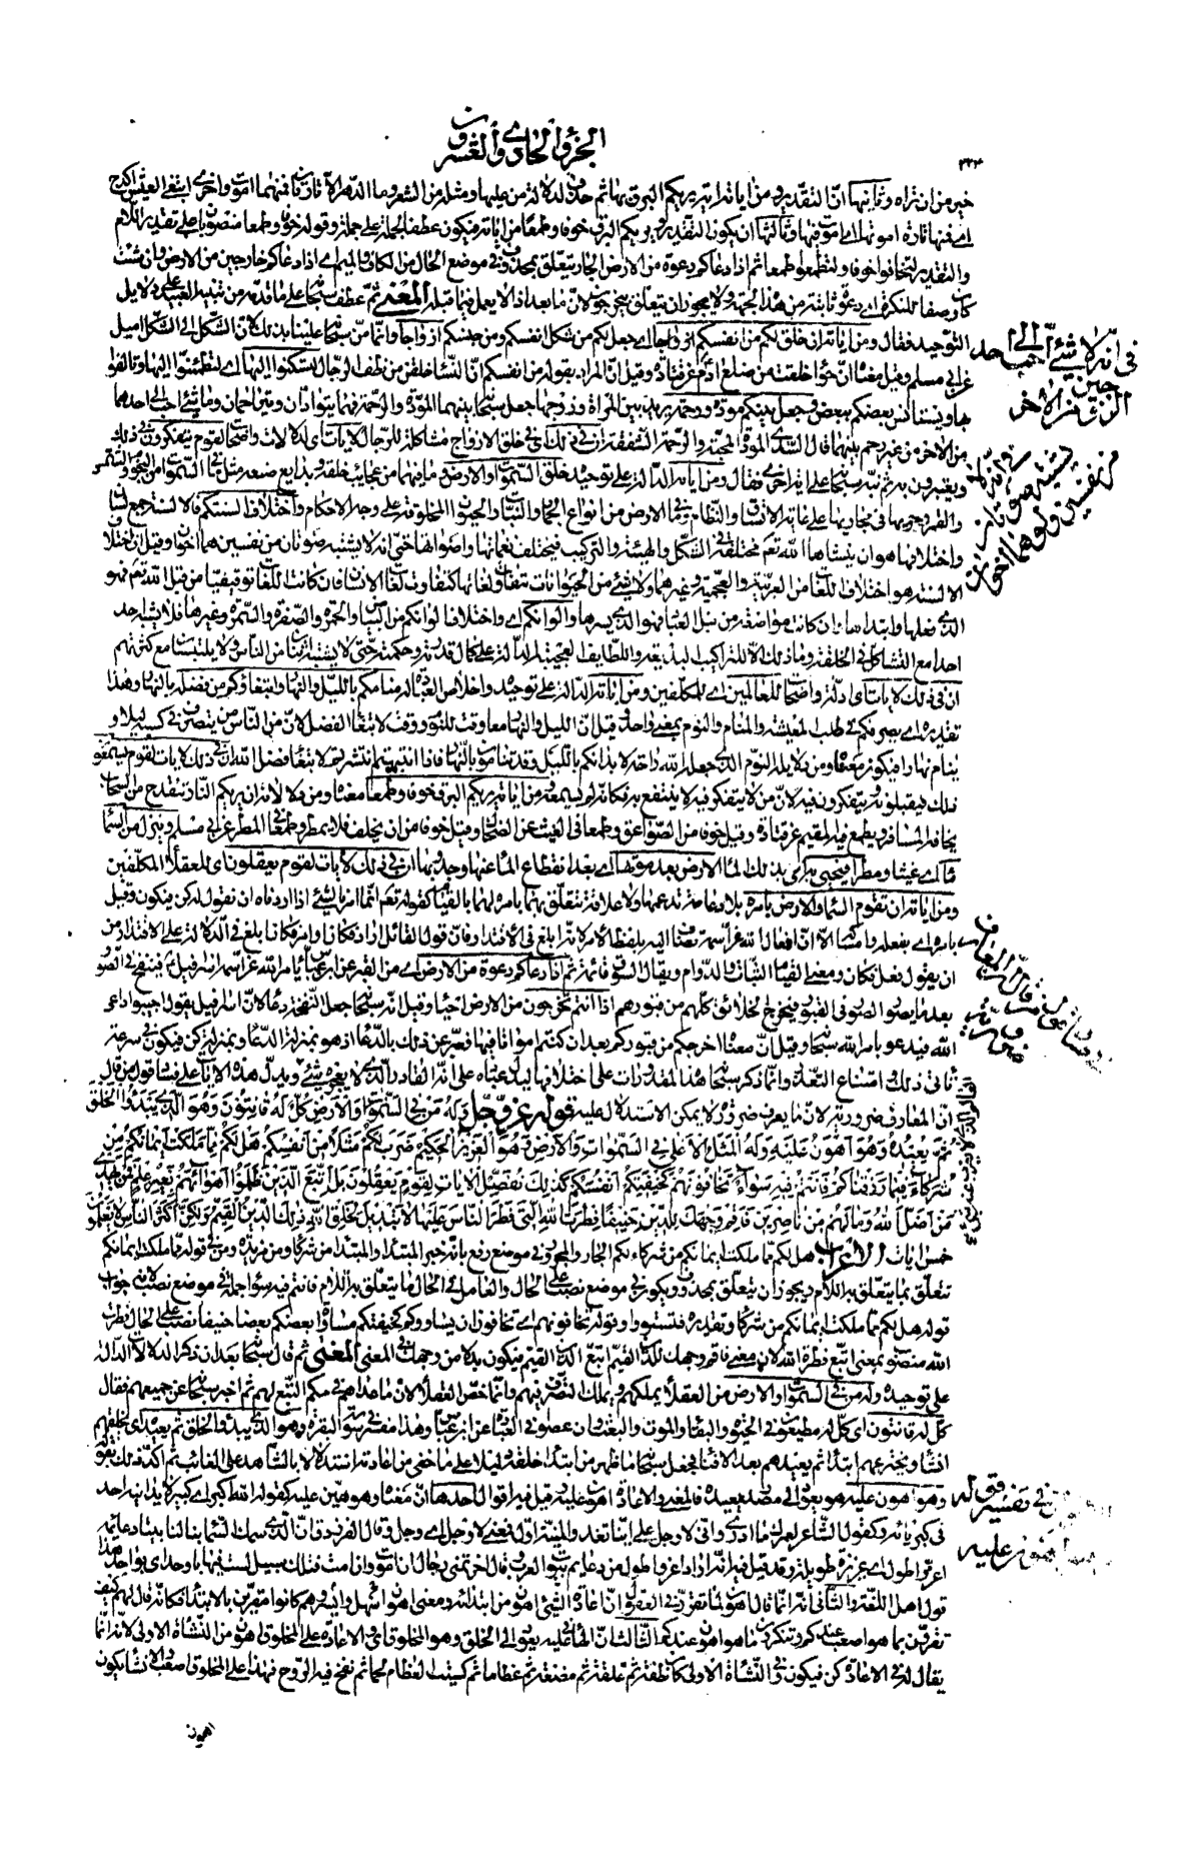 الجزء الحادي والعشرون
٣٢٤
خير من ان تراه وثانيها انّ التقدير ومن اياته انه يريكم البرق بها ثم حذف لدلالة من عليها ومثله من الشعر وما الدهر الا تارتان فمنهما اموت واخرى ابتغي العيش اكدح
اي فمنها تارة اموتها اي اموت فيها وثالثها ان يكون التقدير ويريكم البرق خوفا وطمعا من اياته فيكون عطفا لجملة على جملة وقوله خوفا وطمعا منصوبان على تقدير اللام
والتقدير لتخافوا خوفا ولتطمعوا طمعا ثم اذا دعاكم دعوة من الارض الجار يتعلق بمحذوف في موضع الحال من الكاف والميم اي اذا دعاكم خارجين من الارض وان شئت
كان وصفا للنكرة اي دعوة ثابتة من هذا الجهة ولا يجوز ان يتعلق بتخرجون لان ما بعد اذا لا يعمل فيما قبله المعنى ثم عطف سبحانه على ما قدمه من تنبيه العبيد على دلايل
التوحيد فقال ومن اياته ان خلق لكم من انفسكم ازواجا اي جعل لكم من شكل انفسكم ومن جنسكم ازواجا وانما منّ سبحانه علينا بذلك لان الشكل الى الشكل اميل
عن ابي مسلم وقيل معناه ان حوّاء خلقت من ضلع ادم عن قتادة وقيل ان المراد بقوله من انفسكم ان النساء خلقن من نطف الرجال لتسكنوا اليها اي لتطمئنوا اليها وتالفوا
بها ويستانس بعضكم ببعض وجعل بينكم مودة ورحمة يريد بين المراة وزوجها جعل سبحانه بينهما المودة والرحمة فهما يتوادان ويتراحمان وما شيء احب الى احدهما
من الاخر من غير رحم بينهما قال السدي المودة المحبة والرحمة الشفقة ان في ذلك اي في خلق الازواج مشاكلة للرجال لايات اي لدلالات واضحات لقوم يتفكرون في ذلك
ويعتبرون به ثم نبه سبحانه على اية اخرى فقال ومن اياته الدالة على توحيده خلق السموات والارض وما فيهما من عجائب خلقه وبدايع صنعه مثل ما في السموات من النجوم والشمس
والقمر وجريها في مجاريها على غاية الاتساق والنظام وما في الارض من انواع الجماد والنبات والحيوان المخلوقة على وجه الاحكام واختلاف السنتكم فالالسنة جمع لسان
واختلافها هو ان ينشاها الله تعم مختلفة في الشكل والهيئة والتركيب فيختلف نغماتها واصواتها حتى انه لا يشتبه صوتان من نفسين هما اخوان وقيل ان اختلاف
الالسنة هو اختلاف اللغات من العربية والعجمية وغيرهما ولا شيء من الحيوانات تتفاوت لغاتها كتفاوت لغات الانسان فان كانت اللغات توقيفيا من قبل الله تعم فهو
الذي فعلها وابتداها وان كانت مواضعة من قبل العباد فهو الذي يسرها والوانكم اي واختلاف الوانكم من البياض والحمرة والصفرة والسمرة وغيرها فلا يشبه احد
احدا مع التشاكل في الخلقة وما ذلك الا للتراكيب البديعة واللطايف العجيبة الدالة على كمال قدرته وحكمته حتى لا يشتبه اثنان من الناس ولا يلتبسان مع كثرتهم
ان في ذلك لايات اي ادلة واضحات للعالمين اي للمكلفين ومن اياته الدالة على توحيده واخلاص العبادة له منامكم بالليل والنهار وابتغاؤكم من فضله بالنهار وهذا
تقديره اي يصرفكم في طلب المعيشة والمنام والنوم بمعنى واحد وقيل ان الليل والنهار معا وقت للنوم ووقت لابتغاء الفضل لان من الناس من يتصرف في كسبه ليلا و
ينام نهارا فيكون معناه ومن دلايله النوم الذي جعله الله راحة لابدانكم بالليل وقد تنامون بالنهار فاذا انتبهتم انتشرتم لابتغاء فضل الله ان في ذلك لايات لقوم يسمعون
ذلك فيقبلونه ويتفكرون فيه لان من لا يتفكر فيه لا ينتفع به فكانه لم يسمعه ومن اياته يريكم البرق خوفا وطمعا معناه ومن دلالاته ان يريكم النار تنقدح من السحاب
يخافه المسافر ويطمع فيه المقيم عن قتادة وقيل خوفا من الصواعق وطمعا في الغيث عن الضحاك وقيل خوفا من ان يخلف فلا يمطر وطمعا في المطر عن ابي مسلم وينزل من السماء
ماء اي غيثا ومطرا فيحيي به اي بذلك الماء الارض بعد موتها اي بعد انقطاع الماء عنها وجدوبها ان في ذلك لايات لقوم يعقلون اي للعقلاء المكلفين
ومن اياته ان تقوم السماء والارض بامره بلا دعامة تدعمها ولا علاقة تتعلق بهما بامره لهما بالقيام كقوله تعم انما امرنا لشيء اذا اردناه ان نقول له كن فيكون وقيل
بامره اي بفعله وامساكه الا ان افعال الله عز اسمه تضاف اليه بلفظ الامر لانه ابلغ في الاقتدار فان قول القائل اراد فكان او امر فكان ابلغ في الدلالة على الاقتدار من
ان يقول فعل فكان ومعنى القيام الثبات والدوام ويقال السوق قائمة ثم اذا دعاكم دعوة من الارض اي من القبر عن ابن عباس يامر الله عز اسمه اسرافيل فينفخ في الصور
بعد ما يصور الصور في القبور فيخرج الخلائق كلهم من قبورهم اذا انتم تخرجون من الارض احياء وقيل انه سبحانه جعل النفخة دعاء لان اسرافيل يقول اجيبوا داعي
الله فيدعو بامر الله سبحانه وقيل ان معناه اخرجكم من قبوركم بعد ان كنتم امواتا فيها فعبر عن ذلك بالدعاء اذ هو بمنزلة الدعاء وبمنزلة كن فيكون في سرعة
تاتي ذلك وامتناع التعذر وانما ذكر سبحانه هذا المقدورات على اختلافها ليدل عباده على انه القادر الذي لا يعجزه شيء ويدل هذه الايات على فساد قول من قال
ان المعارف ضرورية لان ما يعرف ضرورة لا يمكن الاستدلال عليه قوله عزّ وجلّ وَلَهُ مَن فِي السَّمٰوَاتِ وَالْاَرْضِ كُلٌّ لَهُ قَانِتُونَ وَهُوَ الَّذِي يَبْدَؤُا الْخَلْقَ
ثُمَّ يُعِيدُهُ وَهُوَ اَهْوَنُ عَلَيْهِ وَلَهُ الْمَثَلُ الْاَعْلٰى فِي السَّمٰوَاتِ وَالْاَرْضِ وَهُوَ الْعَزِيزُ الْحَكِيمُ ضَرَبَ لَكُمْ مَثَلًا مِنْ اَنْفُسِكُمْ هَلْ لَكُمْ مِمَّا مَلَكَتْ اَيْمَانُكُمْ مِنْ
شُرَكَاءَ فِيمَا رَزَقْنَاكُمْ فَاَنْتُمْ فِيهِ سَوَاءٌ تَخَافُونَهُمْ كَخِيفَتِكُمْ اَنْفُسَكُمْ كَذٰلِكَ نُفَصِّلُ الْاٰيَاتِ لِقَوْمٍ يَعْقِلُونَ بَلِ اتَّبَعَ الَّذِينَ ظَلَمُوا اَهْوَاءَهُمْ بِغَيْرِ عِلْمٍ فَمَنْ يَهْدِي
مَنْ اَضَلَّ اللهُ وَمَا لَهُمْ مِنْ نَاصِرِينَ فَاَقِمْ وَجْهَكَ لِلدِّينِ حَنِيفًا فِطْرَتَ اللهِ الَّتِي فَطَرَ النَّاسَ عَلَيْهَا لَا تَبْدِيلَ لِخَلْقِ اللهِ ذٰلِكَ الدِّينُ الْقَيِّمُ وَلٰكِنَّ اَكْثَرَ النَّاسِ لَا يَعْلَمُونَ
خمس ايات الاعراب هل لكم مما ملكت ايمانكم من شركاء لكم الجار والمجرور في موضع رفع بانه خبر المبتدا والمبتدا من شركاء ومن مزيدة ومن في قوله مما ملكت ايمانكم
تتعلق بما يتعلق به اللام ويجوز ان يتعلق بمحذوف ويكون في موضع نصب على الحال والعامل في الحال ما يتعلق به اللام فانتم فيه سواء جملة في موضع نصب لانه جواب
قوله هل لكم مما ملكت ايمانكم من شركاء وتقديره فتستووا وقوله تخافونهم اي تخافون ان يساووكم كخيفتكم مساواة بعضكم بعضا حنيفا نصب على الحال فطرت
الله منصوب بمعنى اتبع فطرة الله لان معنى فاقم وجهك للدين القيم اتبع الدين القيم فيكون بدلا من وجهك في المعنى المعنى ثم قال سبحانه بعد ان ذكر الدلالات الدالة
على توحيده وله من في السموات والارض من العقلاء يملكهم ويملك التصرف فيهم وانما خص العقلاء لان ما عداهم في حكم التبع لهم ثم اخبر سبحانه عن جميعهم فقال
كل له قانتون اي كل له مطيعون في الحيوة والبقاء والموت والبعث وان عصوا في العبادة عن ابن عباس وهذا مفسر في سورة البقرة وهو الذي يبدؤا الخلق ثم يعيده اي يخلقهم
انشاء ويخترعهم ابتداء ثم يعيدهم بعد الافناء فجعل سبحانه ما ظهر من ابتداء خلقه دليلا على ما خفي من اعادته استدلالا بالشاهد على الغائب ثم اكد ذلك بقوله
وهو اهون عليه هو يعود الى مصدر يعيده فالمعنى والاعادة اهون عليه وقيل فيه اقوال احدها ان معناه وهو هين عليه كقوله الله اكبر اي كبير لا يدانيه احد
في كبريائه وكقول الشاعر لعمرك ما ادري واني لاوجل على اينا تعدو المنية اول فمعنى لاوجل اي وجل وقال الفرزدق ان الذي سمك السماء بنى لنا بيتا دعائمه
اعز واطول اي عزيزة طويلة وقد قيل فيه انه اراد اعز واطول من دعايم بيوت العرب وقال اخر تمنى رجال ان اموت وان امت فتلك سبيل لست فيها باوحد اي بواحد هذا
قول اهل اللغة والثاني انه انما قال اهون لما تقرر في العقول ان اعادة الشيء اهون من ابتدائه ومعنى اهون ايسر واسهل وهم كانوا مقرين بالابتداء فكانه قال لهم كيف
تقرون بما هو اصعب عندكم وتنكرون ما هو اهون عندكم الثالث ان الهاء في عليه يعود الى الخلق وهو المخلوق اي والاعادة على المخلوق اهون من النشاة الاولى لانه انما
يقال له في الاعادة كن فيكون وفي النشاة الاولى كان نطفة ثم علقة ثم مضغة ثم عظاما ثم كسيت العظام لحما ثم نفخ فيه الروح فهذا على المخلوق اصعب والانشاء يكون
اهون
في انه لا شيء احب الى احد
الزوجين من الاخر
في تفسير قوله
اهون عليه